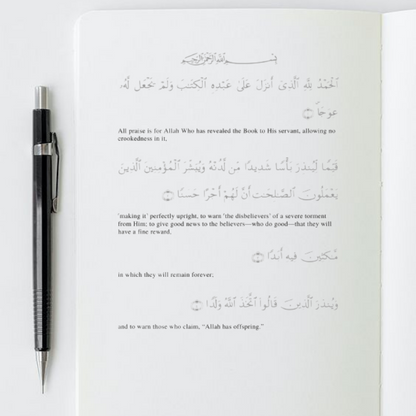 بِسْمِ ٱللَّهِ ٱلرَّحْمَٰنِ ٱلرَّحِيمِ
ٱلْحَمْدُ لِلَّهِ ٱلَّذِىٓ أَنزَلَ عَلَىٰ عَبْدِهِ ٱلْكِتَٰبَ وَلَمْ يَجْعَل لَّهُۥ
عِوَجَاۜ
All praise is for Allah Who has revealed the Book to His servant, allowing no
crookedness in it,
قَيِّمًا لِّيُنذِرَ بَأْسًا شَدِيدًا مِّن لَّدُنْهُ وَيُبَشِّرَ ٱلْمُؤْمِنِينَ ٱلَّذِينَ
يَعْمَلُونَ ٱلصَّٰلِحَٰتِ أَنَّ لَهُمْ أَجْرًا حَسَنًا
˹making it˺ perfectly upright, to warn ˹the disbelievers˺ of a severe torment
from Him; to give good news to the believers—who do good—that they will
have a fine reward,
مَّٰكِثِينَ فِيهِ أَبَدًا
in which they will remain forever;
وَيُنذِرَ ٱلَّذِينَ قَالُوا۟ ٱتَّخَذَ ٱللَّهُ وَلَدًا
and to warn those who claim, “Allah has offspring.”